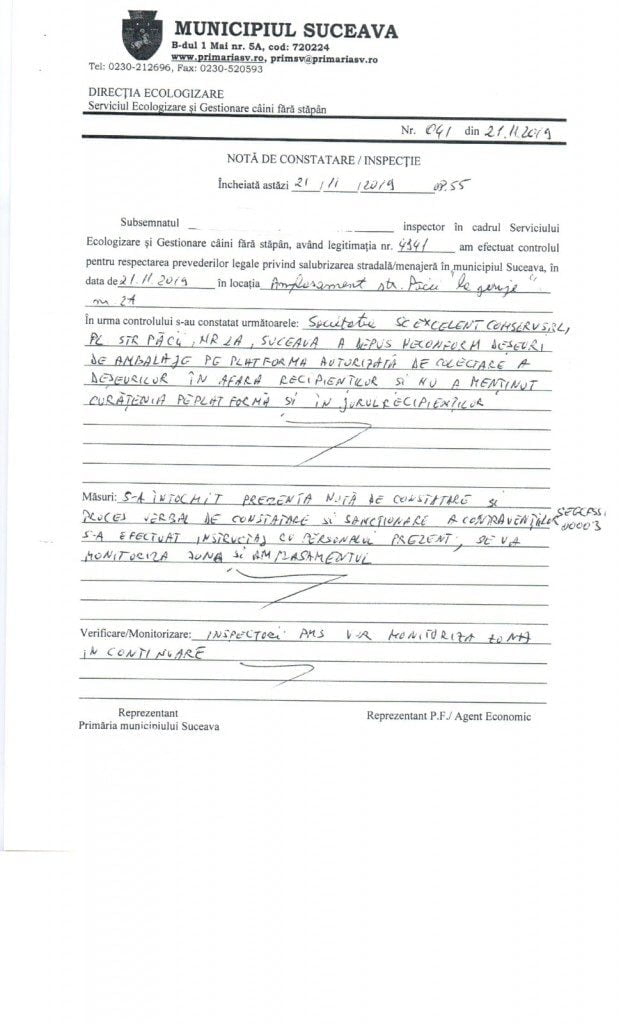 MUNICIPIUL SUCEAVA
B-dul 1 Mai nr. 5A, cod: 720224
www.primariasv.ro, primsv@primariasv.ro
Tel: 0230-212696, Fax: 0230-520593
DIRECȚIA ECOLOGIZARE
Serviciul Ecologizare și Gestionare câini fără stăpân
Nr. 041 din 21.11.2019
NOTĂ DE CONSTATARE / INSPECȚIE
Încheiată astăzi 21 / 11 / 2019 op. 55
Subsemnatul inspector în cadrul Serviciului
Ecologizare și Gestionare câini fără stăpân, având legitimația nr. 4341 am efectuat controlul
pentru respectarea prevederilor legale privind salubrizarea stradală/menajeră în municipiul Suceava, în
data de 21.11.2019 în locația Amplasament str. Păcii "la genije"
nr. 2A
În urma controlului s-au constatat următoarele: Societatea SC EXCELENT COMSERV SRL,
PE STR PĂCII, NR 2A, SUCEAVA A DEPUS NECONFORM DEȘEURI
DE AMBALAJE PE PLATFORMA AUTORIZATĂ DE COLECTARE A
DEȘEURILOR ÎN AFARA RECIPIENȚILOR SI NU A MENȚINUT
CURĂȚENIA PE PLATFORMĂ SI ÎN JURUL RECIPIENȚILOR
Măsuri: S-A ÎNTOCMIT PREZENTA NOTĂ DE CONSTATARE SI
PROCES VERBAL DE CONSTATARE SI SANCȚIONARE A CONTRAVENȚIILOR
00003
S-A EFECTUAT INSTRUCTAJ CU PERSONALUL PREZENT, SE VA
MONITORIZA ZONA SI AMPLASAMENTUL
Verificare/Monitorizare: INSPECTORI PMS VOR MONITORIZA ZONA
IN CONTINUARE
Reprezentant
Primăria municipiului Suceava
Reprezentant P.F./ Agent Economic